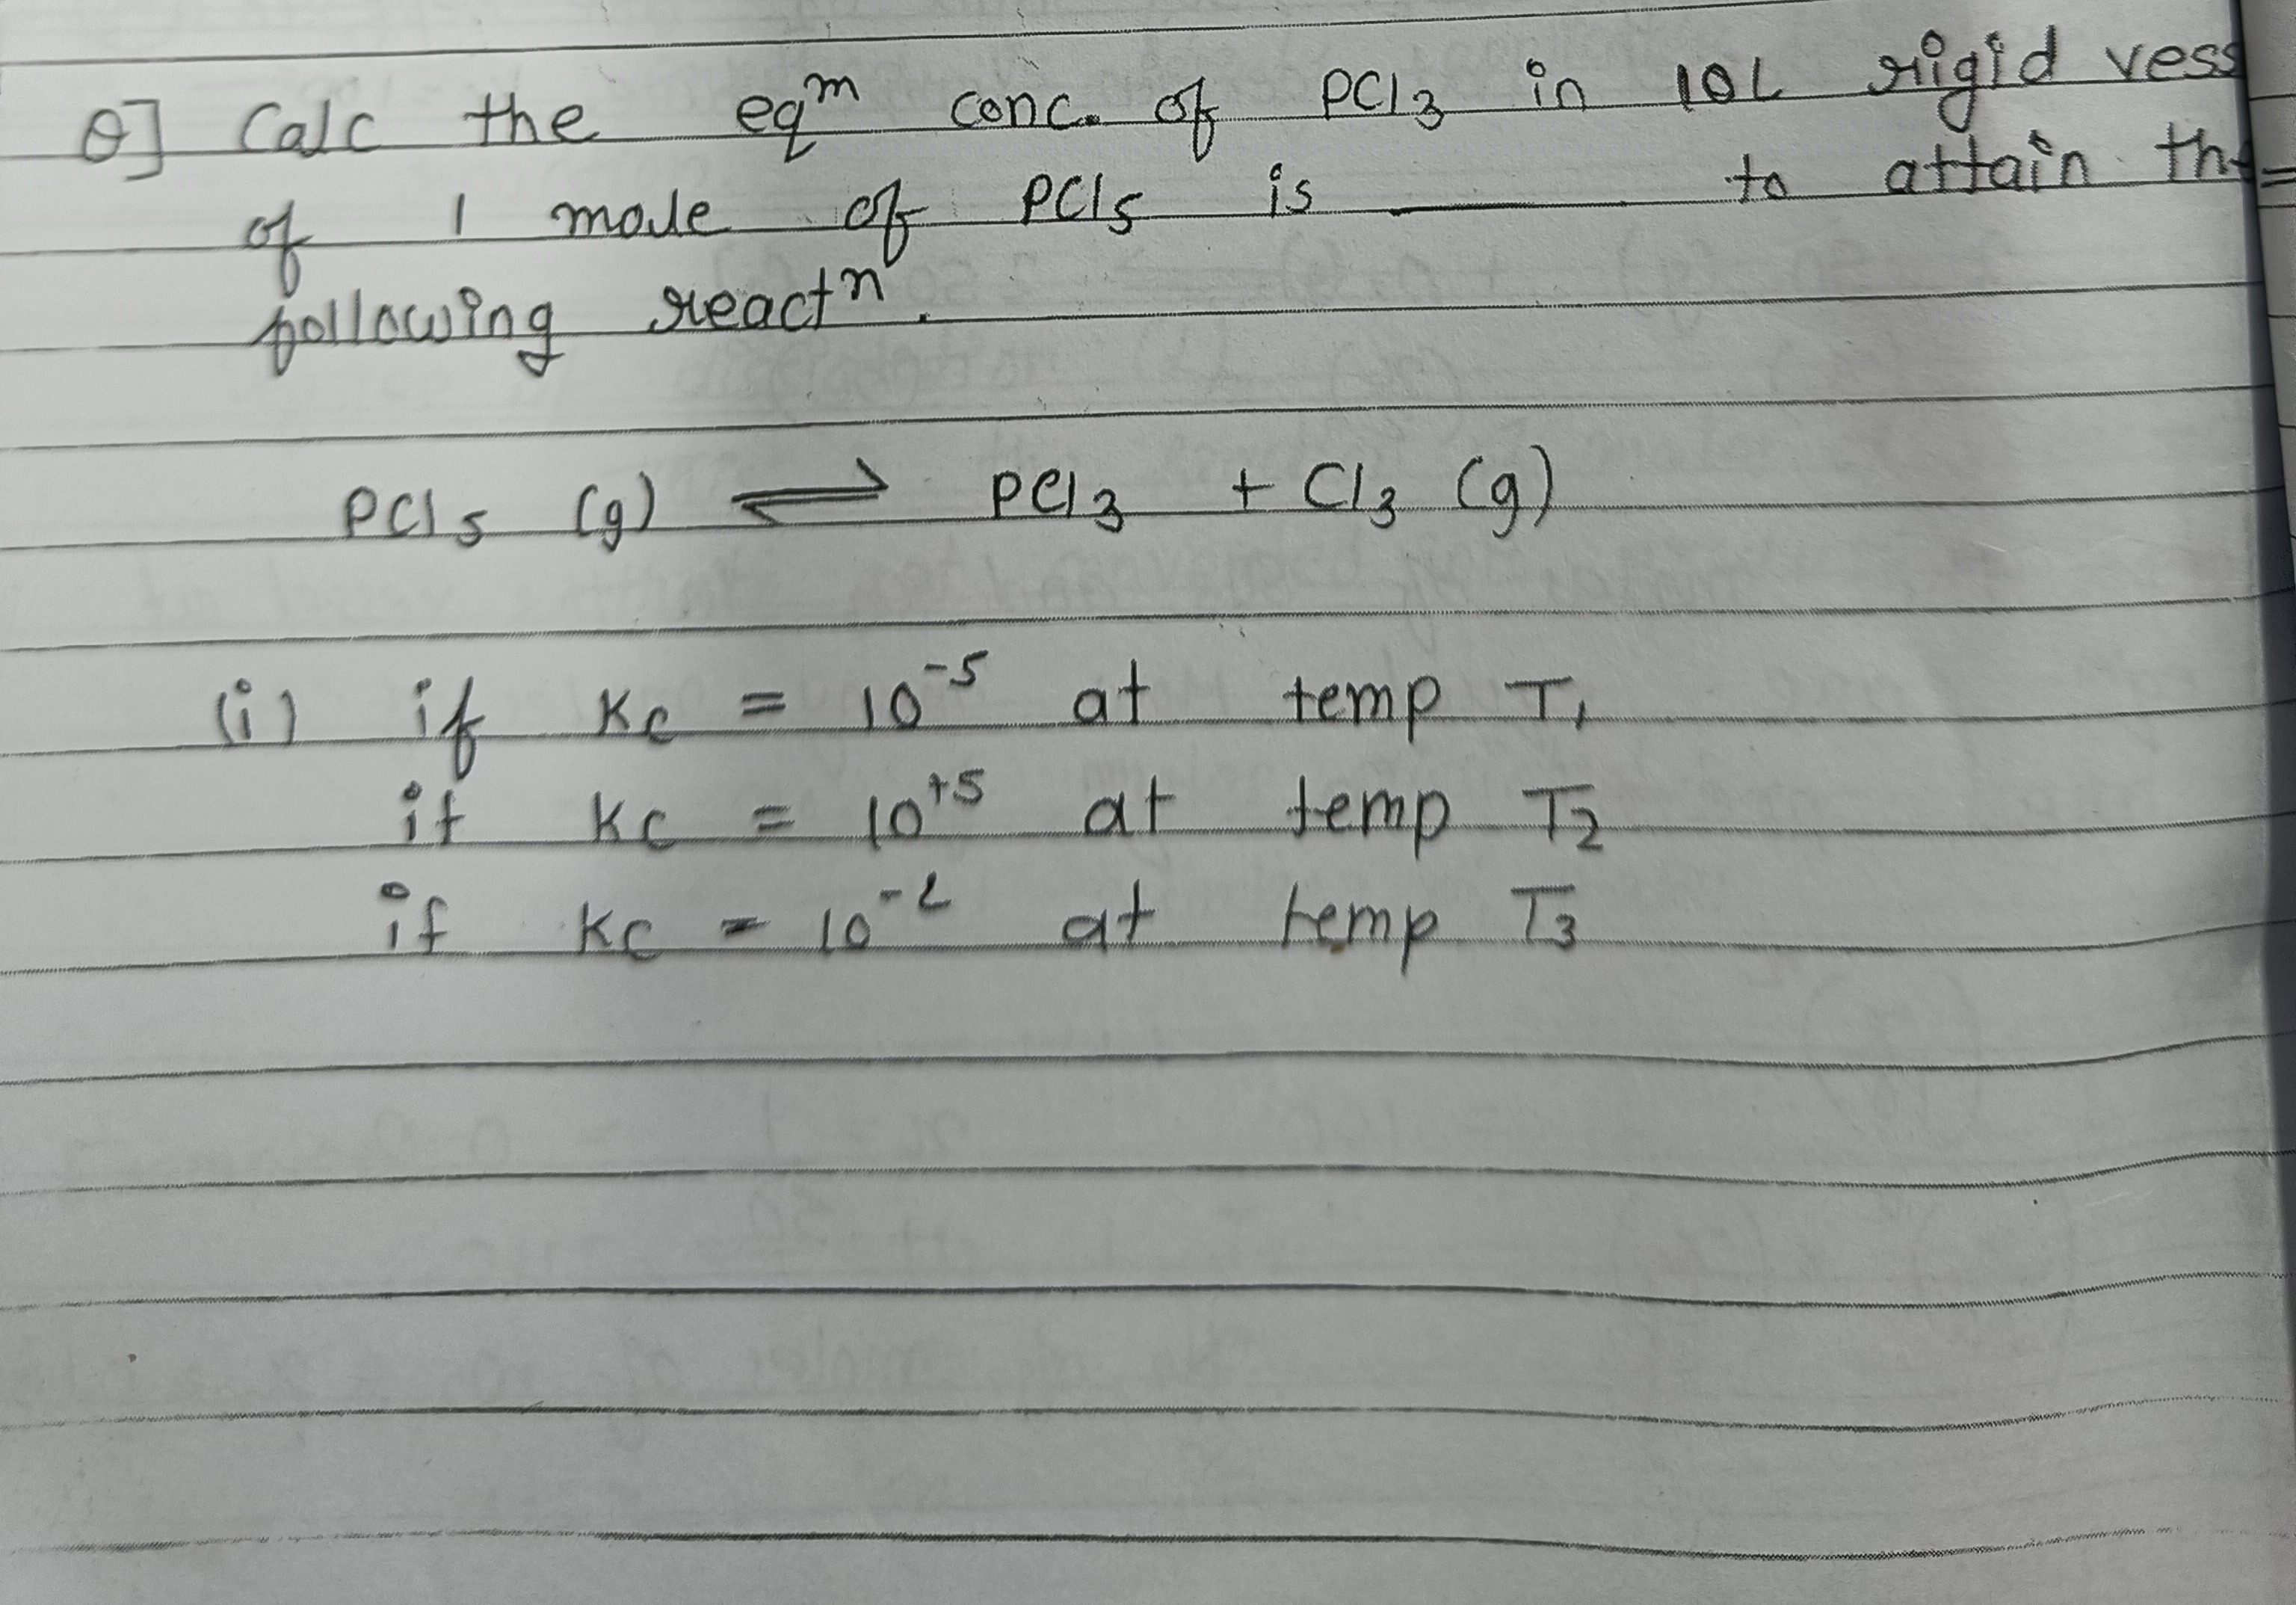 Q] Calc the eqᵐ conc. of PCl₃ in 10L rigid vess
of 1 mole of PCl₅ is ______ to attain the
following reactⁿ.
PCl₅ (g) ⇌ PCl₃ + Cl₃ (g)
(i) if Kc = 10⁻⁵ at temp T₁
if Kc = 10⁺⁵ at temp T₂
if Kc = 10⁻² at temp T₃